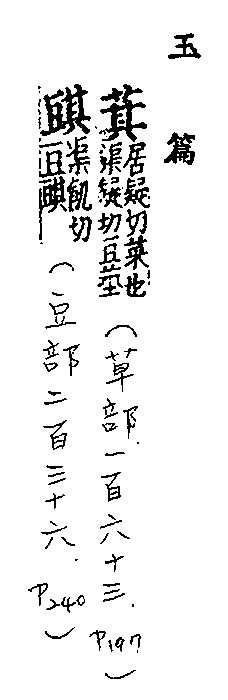 玉篇
萁 居疑切菜也
渠疑切豆莖
(草部一百六十三. P197)
渠飢切
豆
(豆部二百三十六. P240)